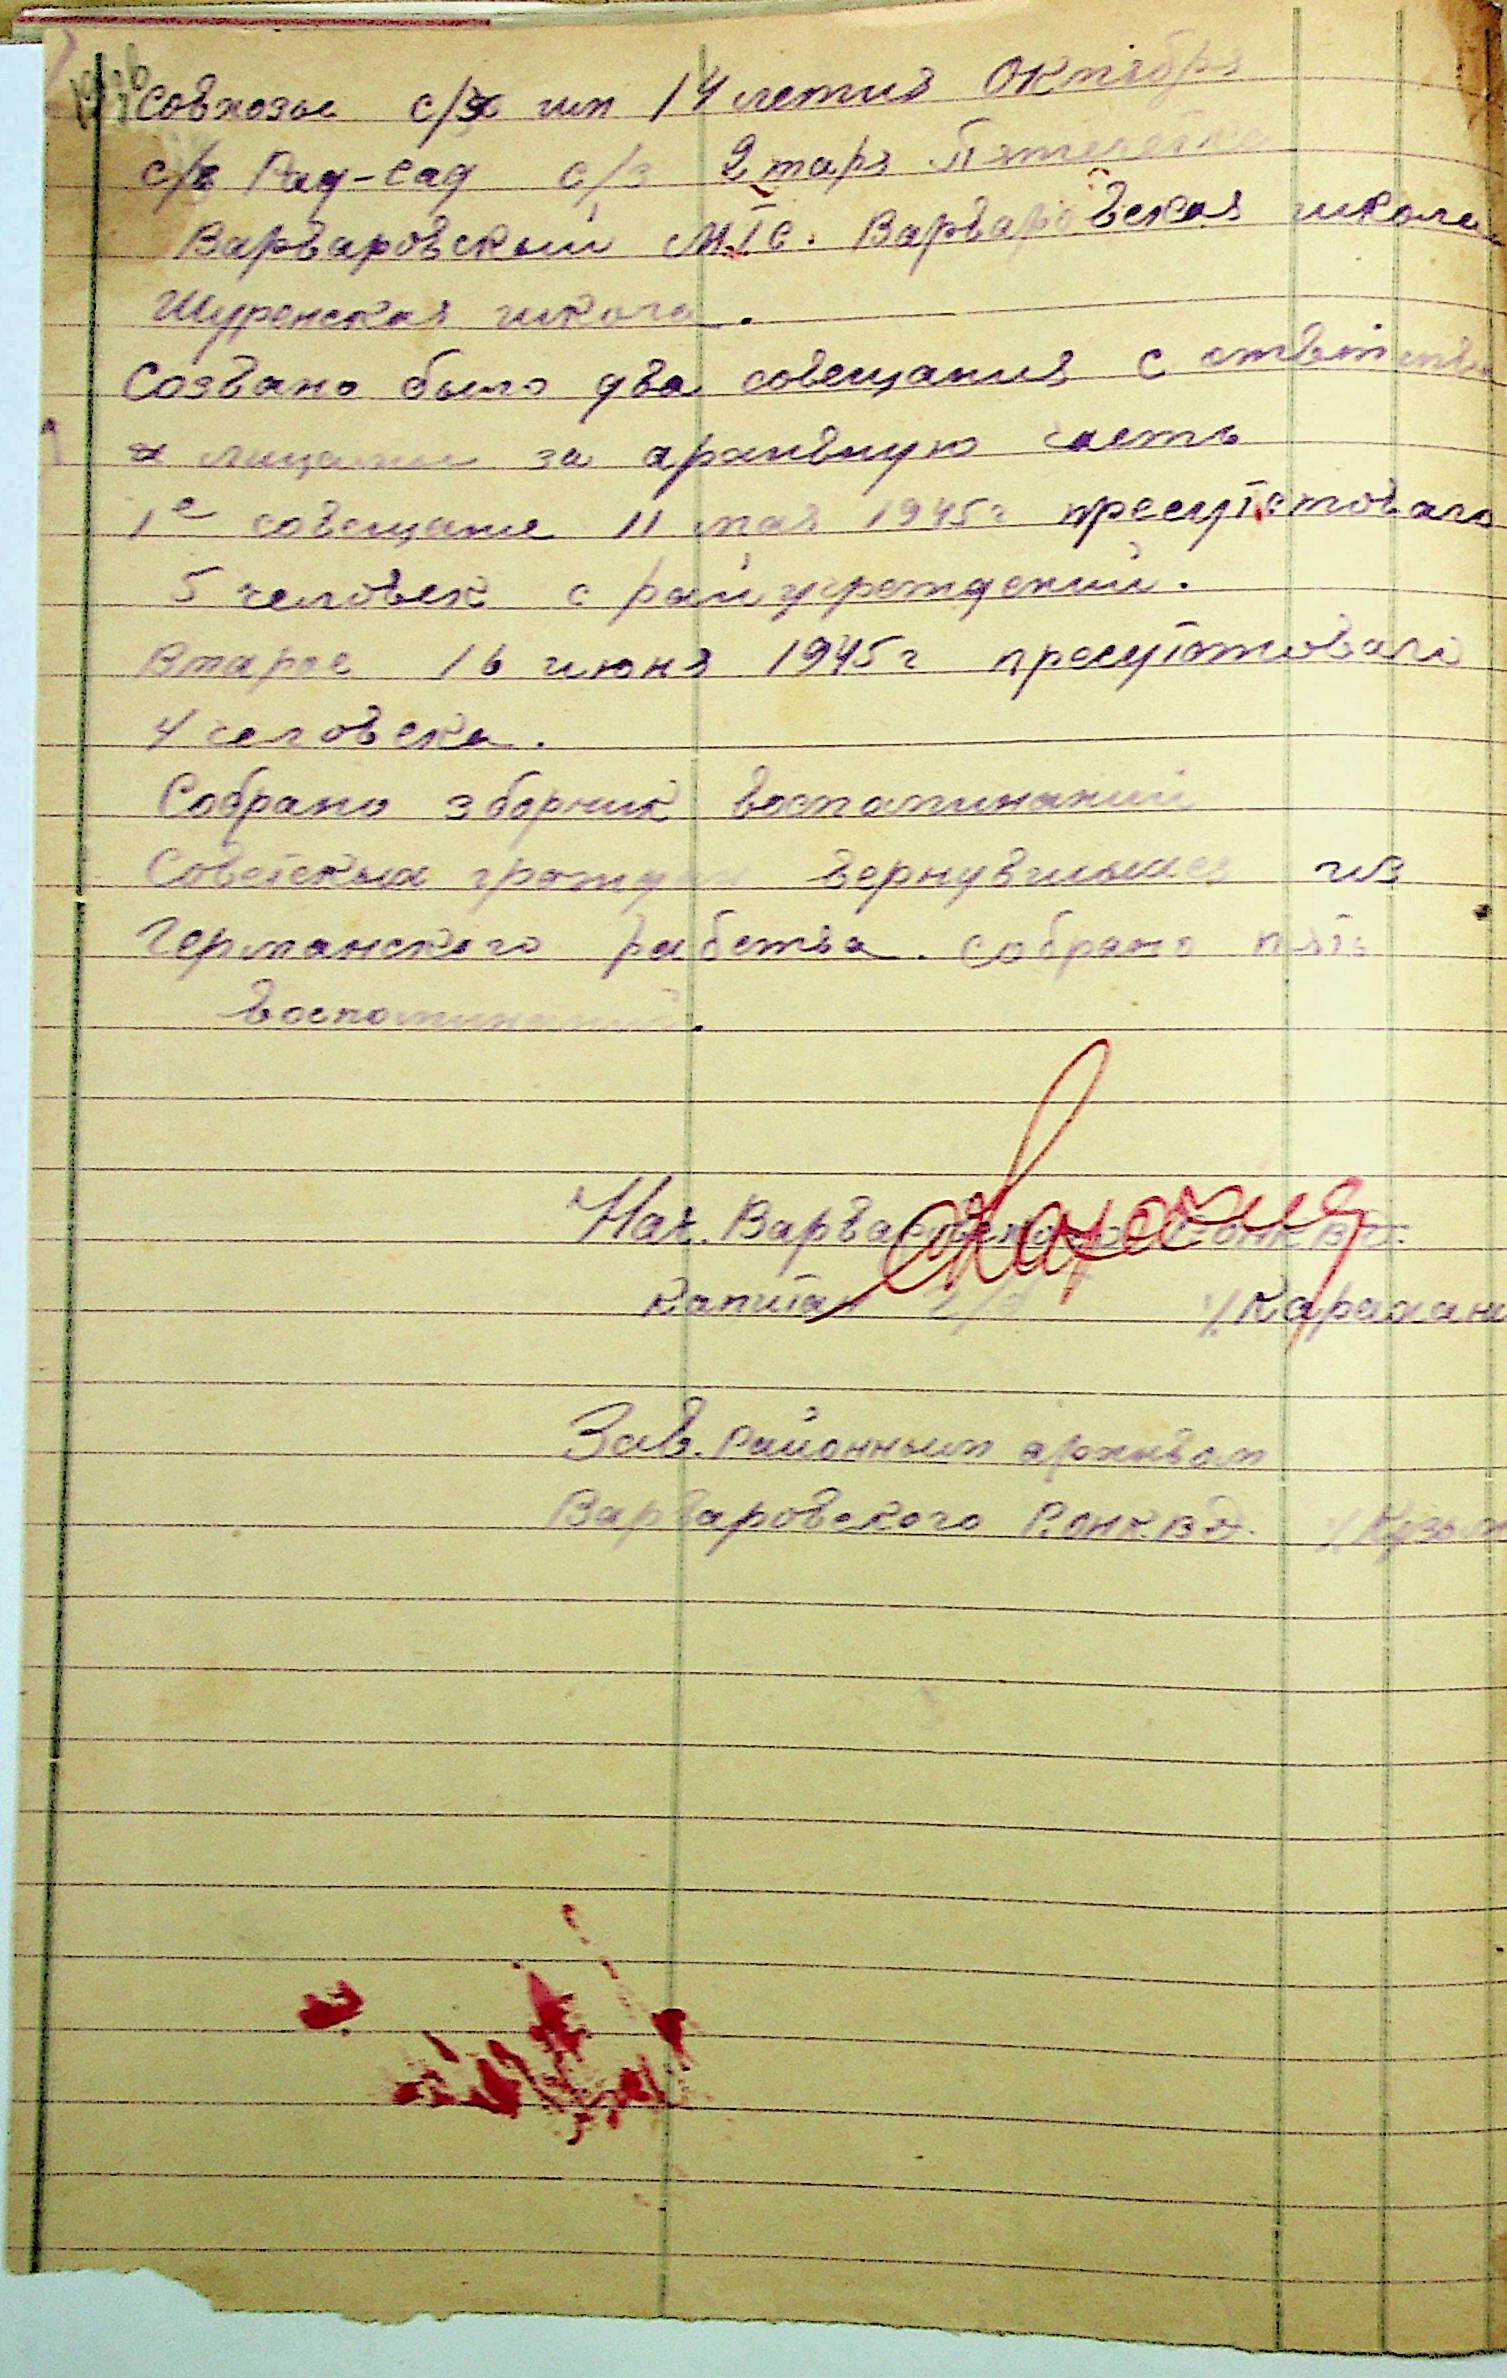 Совхозы с/х им 14 летия Октября
с/з Рад-сад с/з 2 тара Пятилетка
Варваровский МТС. Варваровская школа
Шуренская школа.
Созвано было два совещания с
лицами за архивную часть
1е совещание 11 мая 1945г пресутствовало
5 человек с райучреждений.
Второе 16 июня 1945г пресутствовало
4 человека.
Собрано зборник воспоминаний
Советских граждан вернувшыхся из
Германского рабства. Собрано пять
воспоминаний.
Нач. Варваровского РОНКВД.
Капитан /Карахан
Зав. районным архивом
Варваровского Р.О.Н.К.В.Д. /Кузьм